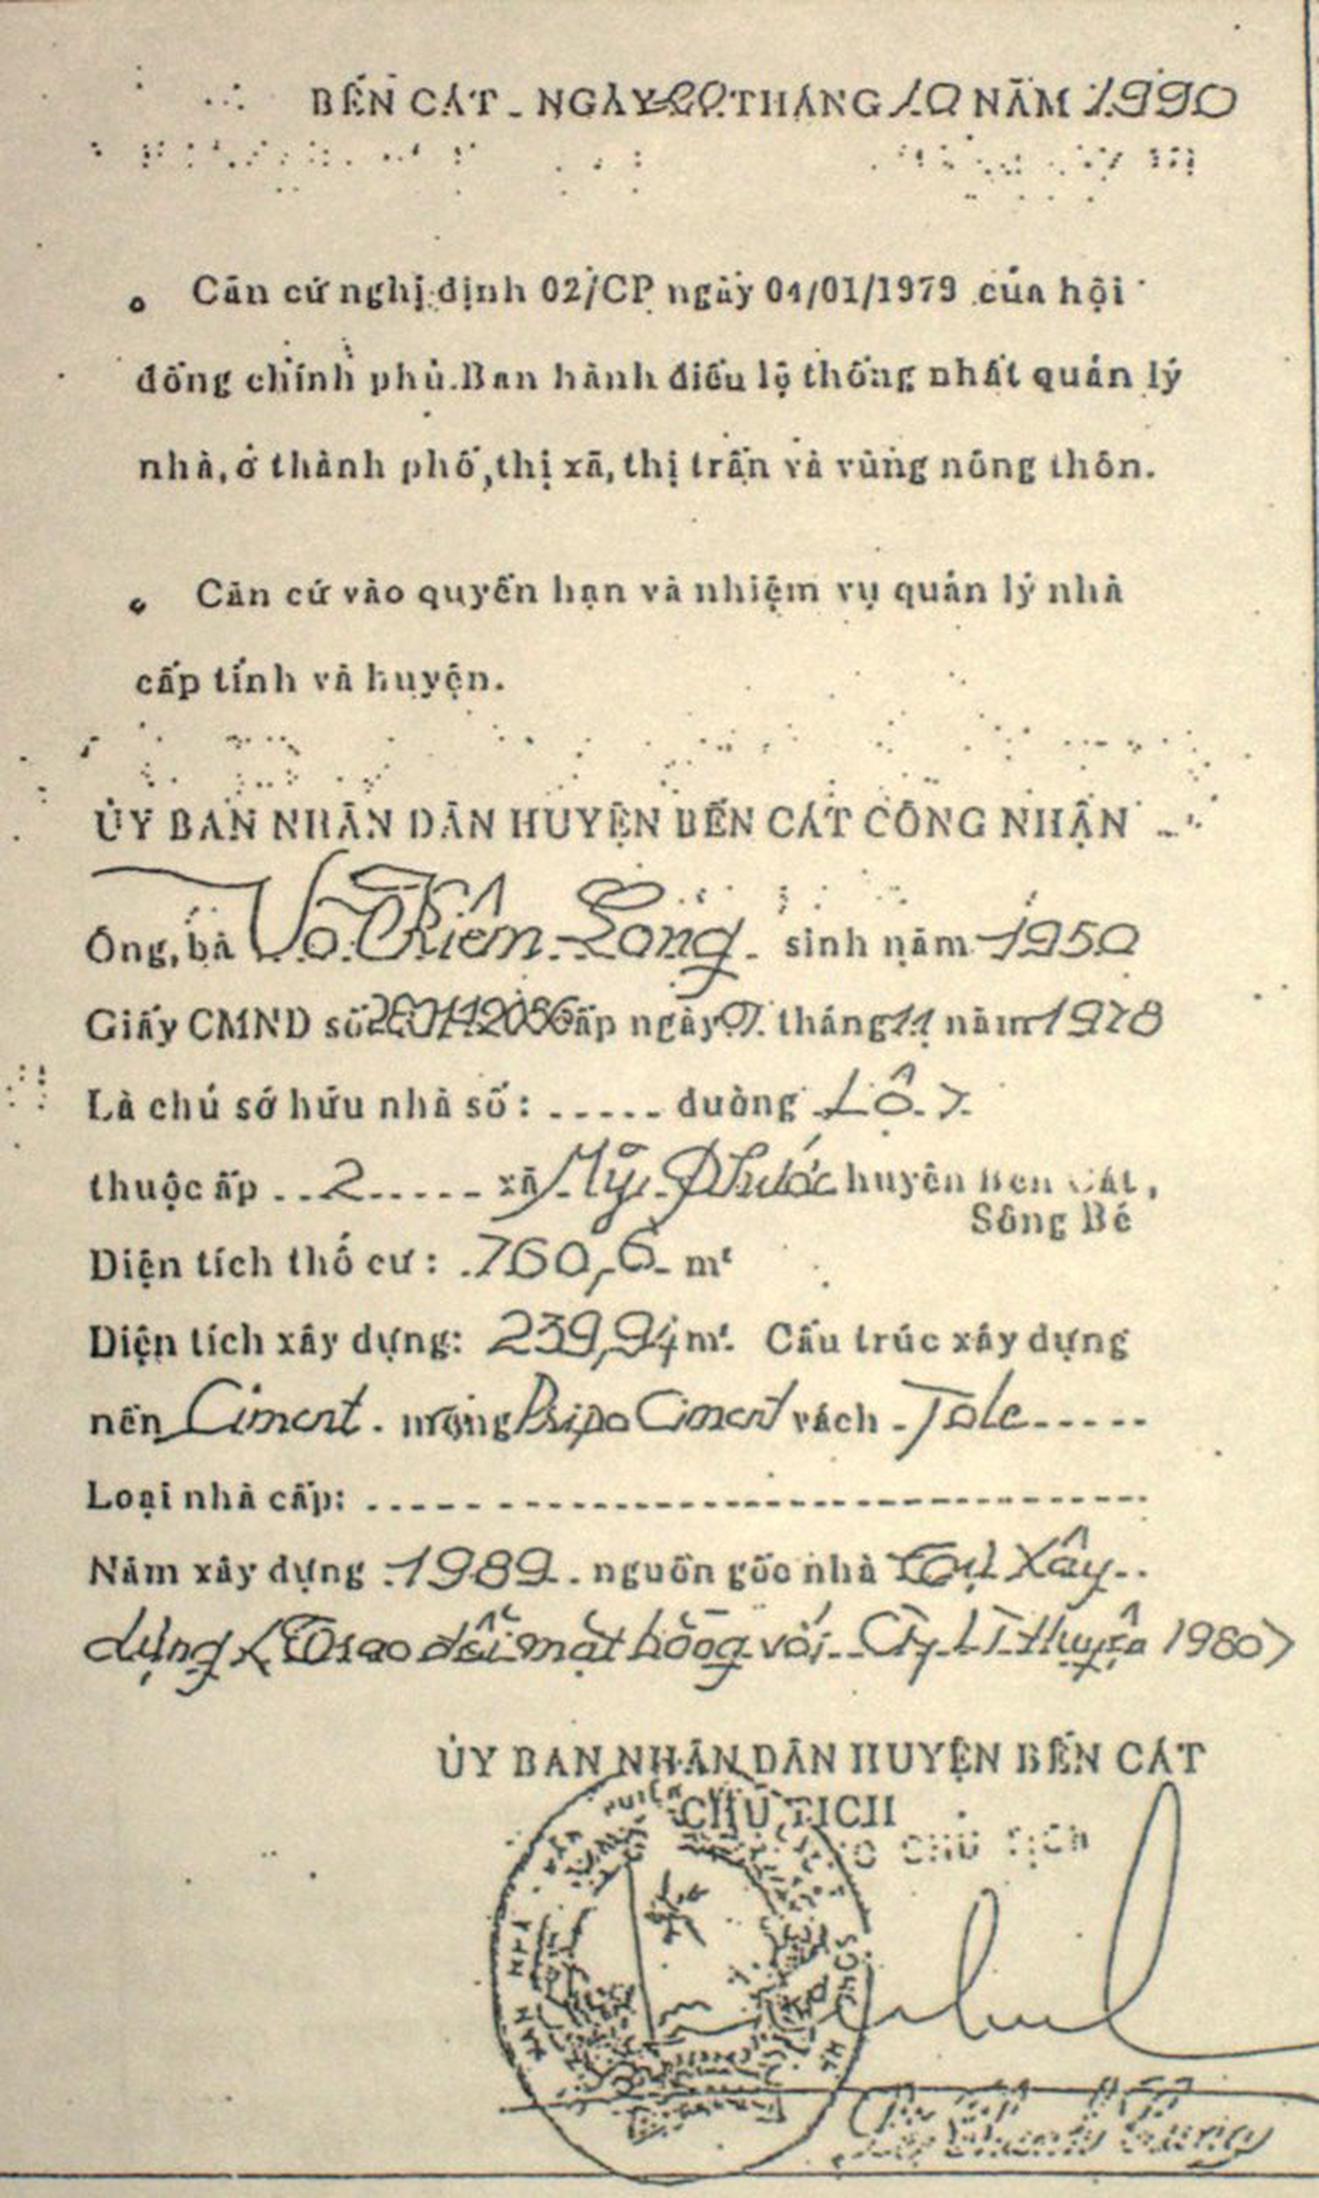 BẾN CÁT - NGÀY 20 THÁNG 10 NĂM 1990
Căn cứ nghị định 02/CP ngày 04/01/1979 của hội
đồng chính phủ. Ban hành điều lệ thống nhất quản lý
nhà, ở thành phố, thị xã, thị trấn và vùng nông thôn.
Căn cứ vào quyền hạn và nhiệm vụ quản lý nhà
cấp tỉnh và huyện.
ỦY BAN NHÂN DÂN HUYỆN BẾN CÁT CÔNG NHẬN
Ông, bà Võ Kiên Long sinh năm 1950
Giấy CMND số 280112056 cấp ngày 9 tháng 11 năm 1978
Là chủ sở hữu nhà số: ..... đường Lô 7
thuộc ấp 2 xã Mỹ Phước huyện Bến Cát,
Sông Bé
Diện tích thổ cư: 760,6 m²
Diện tích xây dựng: 239,94 m². Cấu trúc xây dựng
nền Ciment. Ciment vách Tole
Loại nhà cấp:
Năm xây dựng 1989. nguồn gốc nhà Tự Xây
dựng (Trao đổi mặt bằng với Cty LT Huyện 1980)
ỦY BAN NHÂN DÂN HUYỆN BẾN CÁT
CHỦ TỊCH
PHÓ CHỦ TỊCH